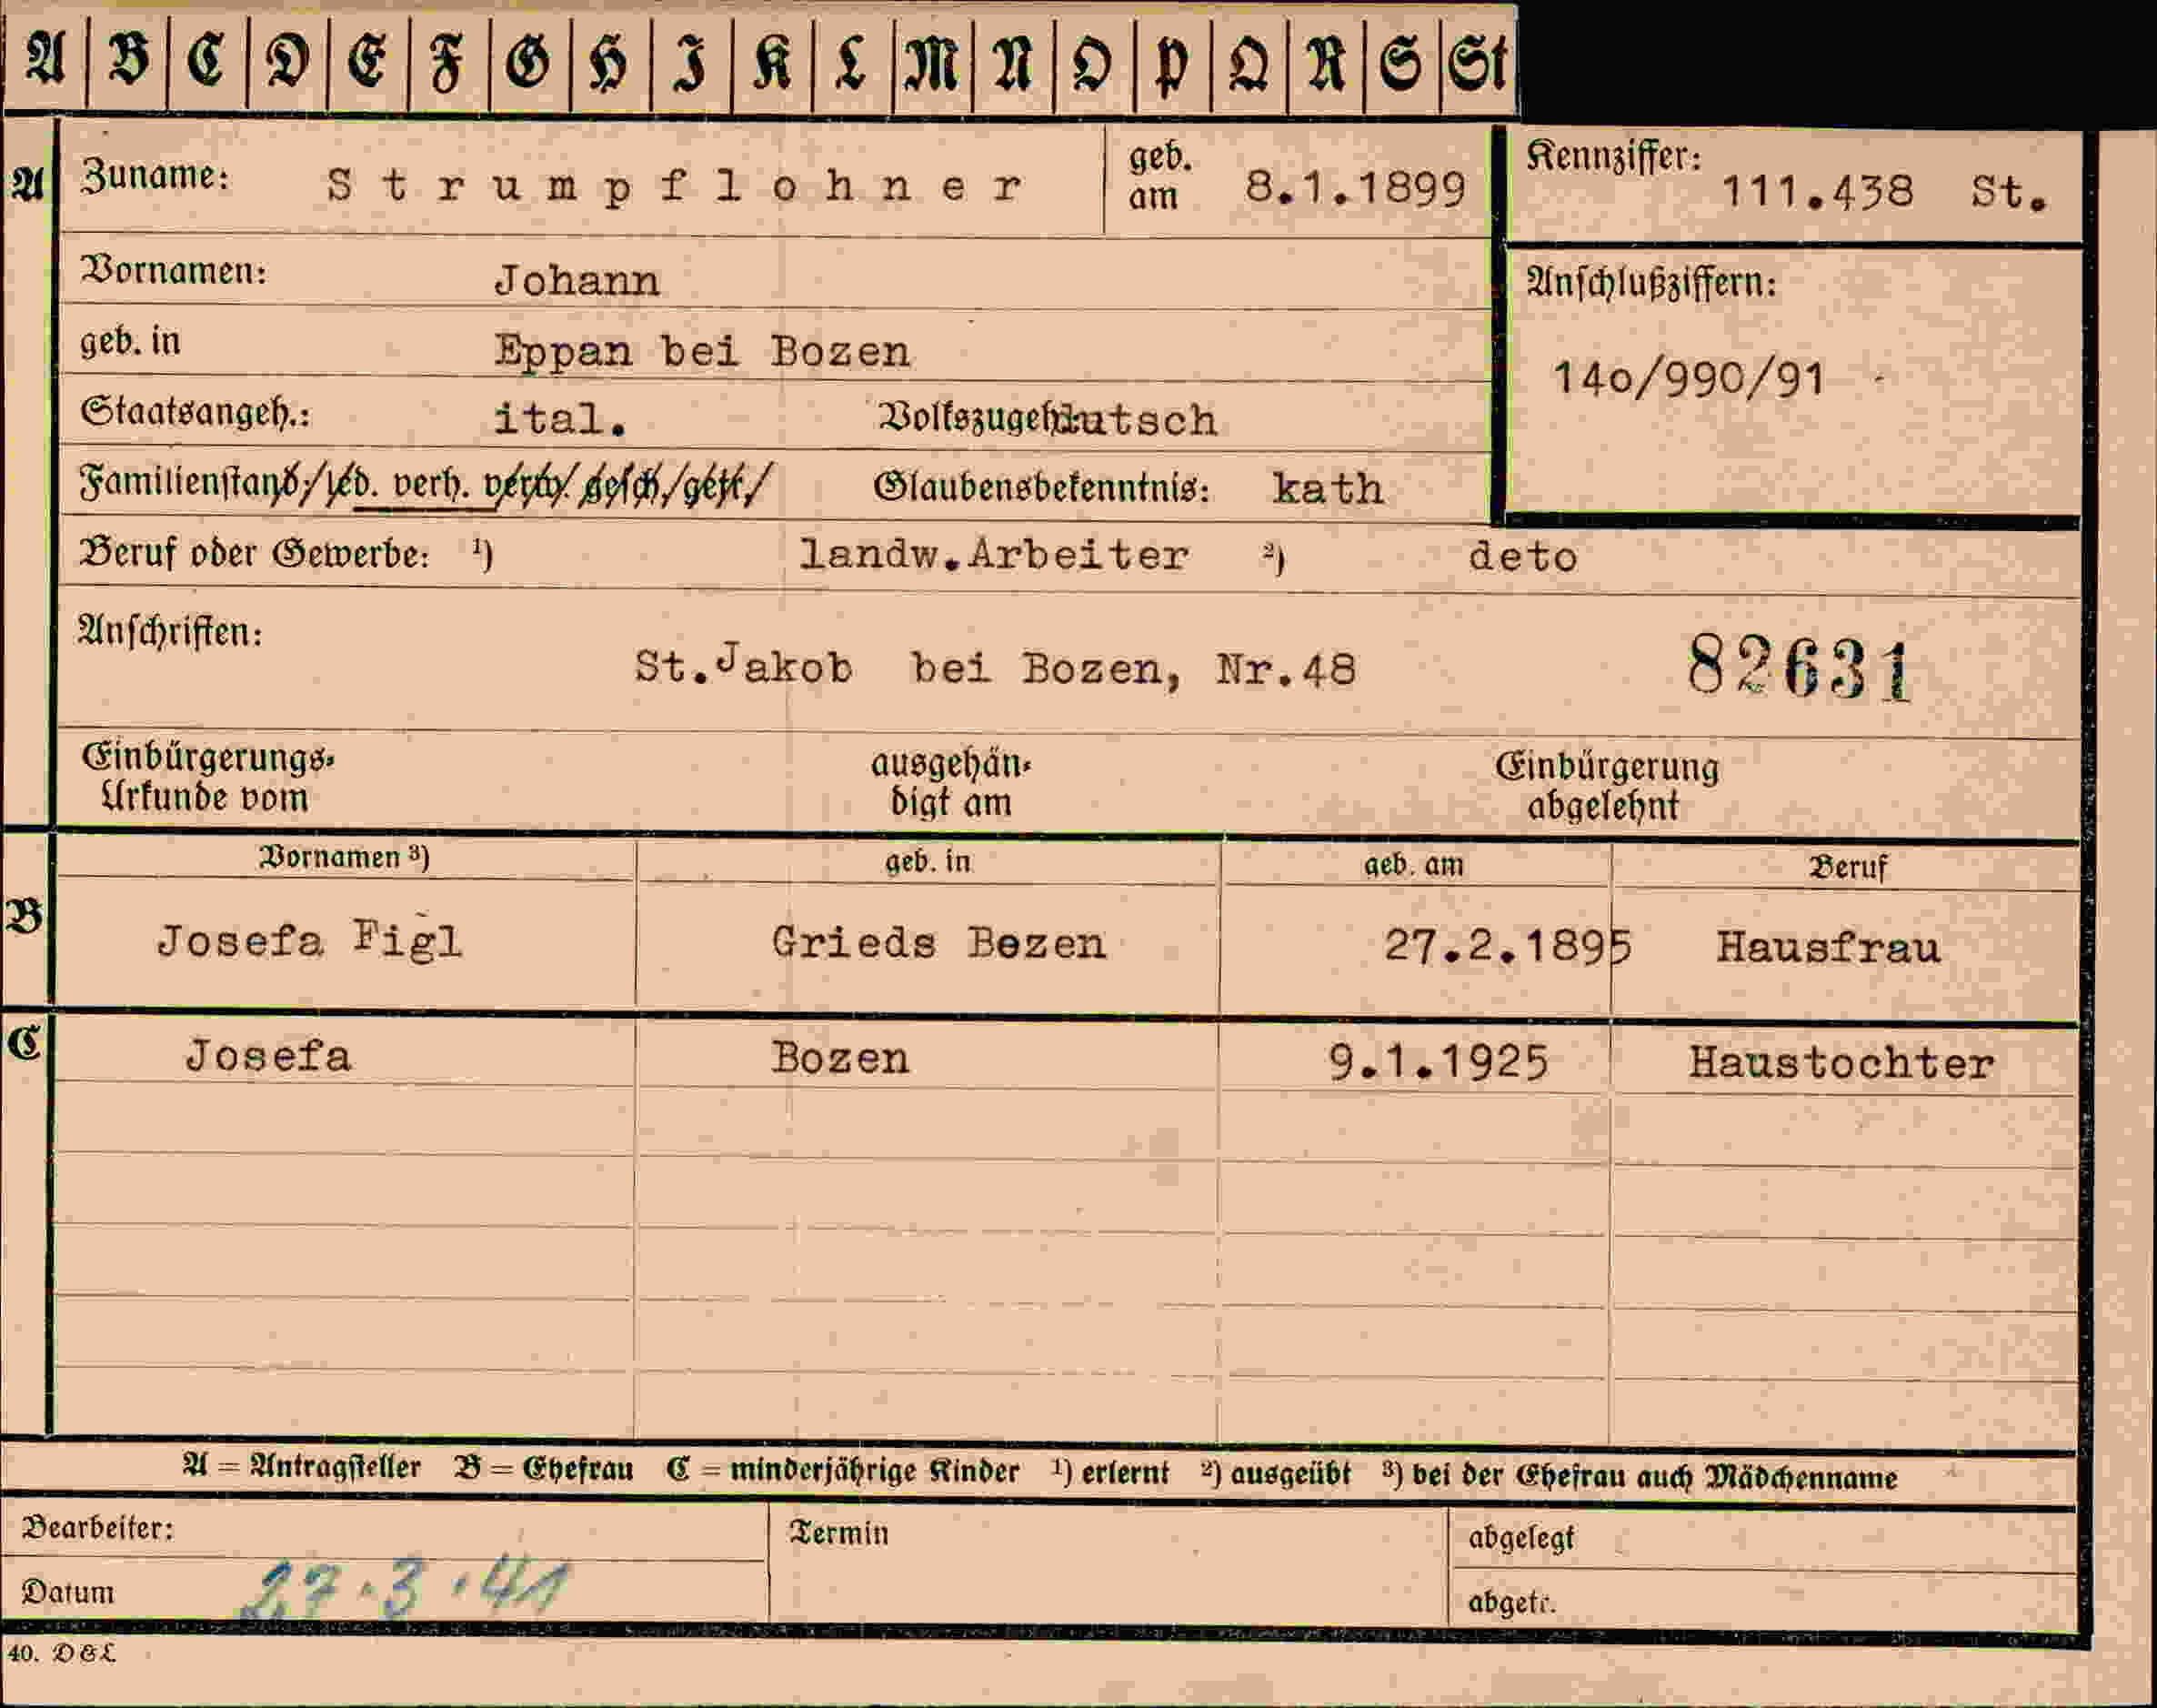 A B C D E F G H I K L M N O P Q R S St
A Zuname: Strumpflohner geb. am 8.1.1899 Kennziffer: 111.438 St.
Vornamen: Johann Anschlußziffern:
geb. in Eppan bei Bozen 14o/990/91
Staatsangeh.: ital. Volkszugeh. deutsch
Familienstand: led. verh. verw. gesch. getr. Glaubensbekenntnis: kath
Beruf oder Gewerbe: ¹) landw.Arbeiter ²) deto
Anschriften:
St.Jakob bei Bozen, Nr.48 82631
Einbürgerungs-Urkunde vom ausgehändigt am Einbürgerung abgelehnt
Vornamen ³) geb. in geb. am Beruf
B Josefa Figl Grieds Bozen 27.2.1895 Hausfrau
C Josefa Bozen 9.1.1925 Haustochter
A = Antragsteller B = Ehefrau C = minderjährige Kinder ¹) erlernt ²) ausgeübt ³) bei der Ehefrau auch Mädchenname
Bearbeiter: Termin abgelegt
Datum 27.3.41 abgetr.
40. D&L